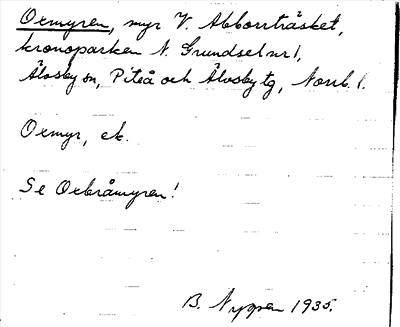 Oxmyren, myr V. Abborrträsket,
kronoparken N. Grundsel nr 1,
Älvsby sn, Piteå och Älvsby tg, Norrb. l.
Oxmyr, ek.
Se Oxbråmyren!
B. Nygren 1935.